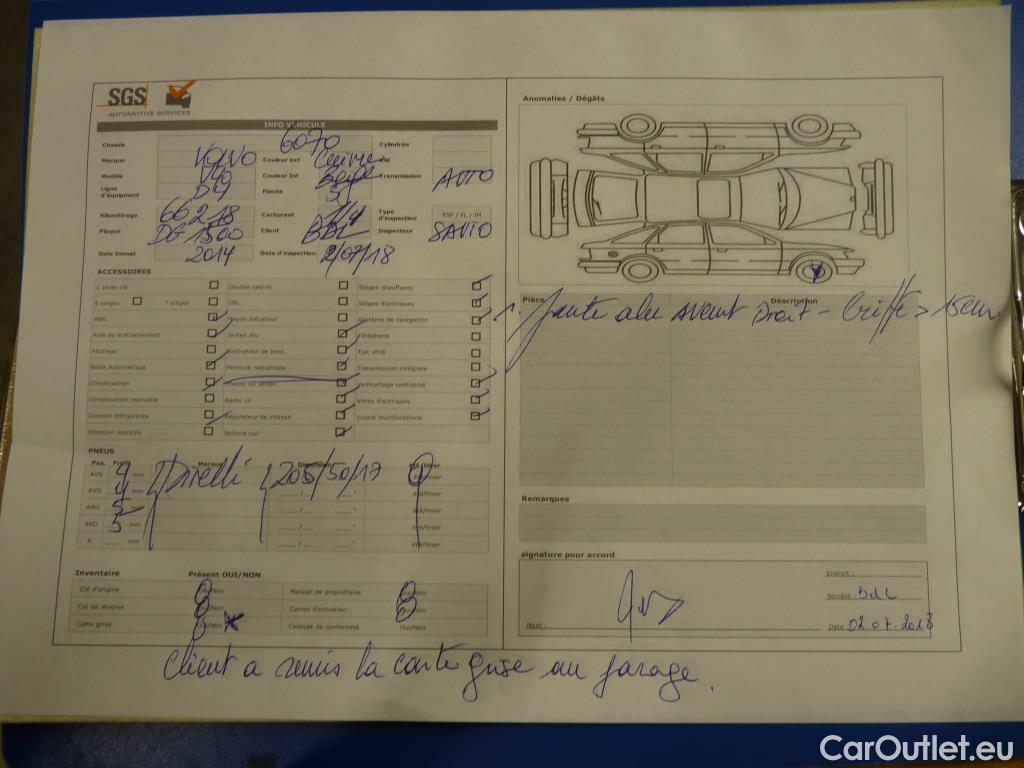 SGS
AUTOMOTIVE SERVICES
INFO VEHICULE
Chassis 6070 Cylindrée
Marque VOLVO Couleur ext Cuivre kw
Modèle V40 Couleur Int Beige Transmission AUTO
Ligne d'équipement D4 Places 5
Kilométrage 66218 Carburant 1/4 Type d'inspection ESP / FL / IM
Plaque DG 1500 Client BDL Inspecteur SAVIO
Date Immat 2014 Date d'inspection 2/07/18
ACCESSOIRES
1 seule clé Double cabine Sièges chauffants
6 sièges 7 sièges GPL Sièges électriques
ABS Hayon élévateur Système de navigation
Aide au stationnement Jantes alu Téléphone
Attelage Ordinateur de bord Toit vitré
Boîte Automatique Peinture métallisée Transmission intégrale
Climatisation Phares au xénon Verrouillage centralisé
Climatisation manuelle Radio cd Vitres électriques
Contrôle réfrigérante Régulateur de vitesse Volant multifonctions
Direction assistée Sellerie cuir
PNEUS
Pos. Profil Marque Dimension été/hiver
AVG 4 mm Pirelli 205/50/17 été/hiver
AVD 4 mm été/hiver
ARG 5 mm été/hiver
ARD 5 mm été/hiver
R mm été/hiver
Inventaire Présent OUI/NON
Clé d'origine Oui/Non Manuel de propriétaire Oui/Non
Clé de réserve Oui/Non Carnet d'entretien Oui/Non
Carte grise Oui/Non Certicat de conformité Oui/Non
Client a remis la carte grise au garage.
Anomalies / Dégâts
Pièce Description
1. Jante alu avant Droit - Griffe > 15cm
Remarques
signature pour accord
Endroit :
Société : BDL
Nom : Date 02.07.2018
CarOutlet.eu